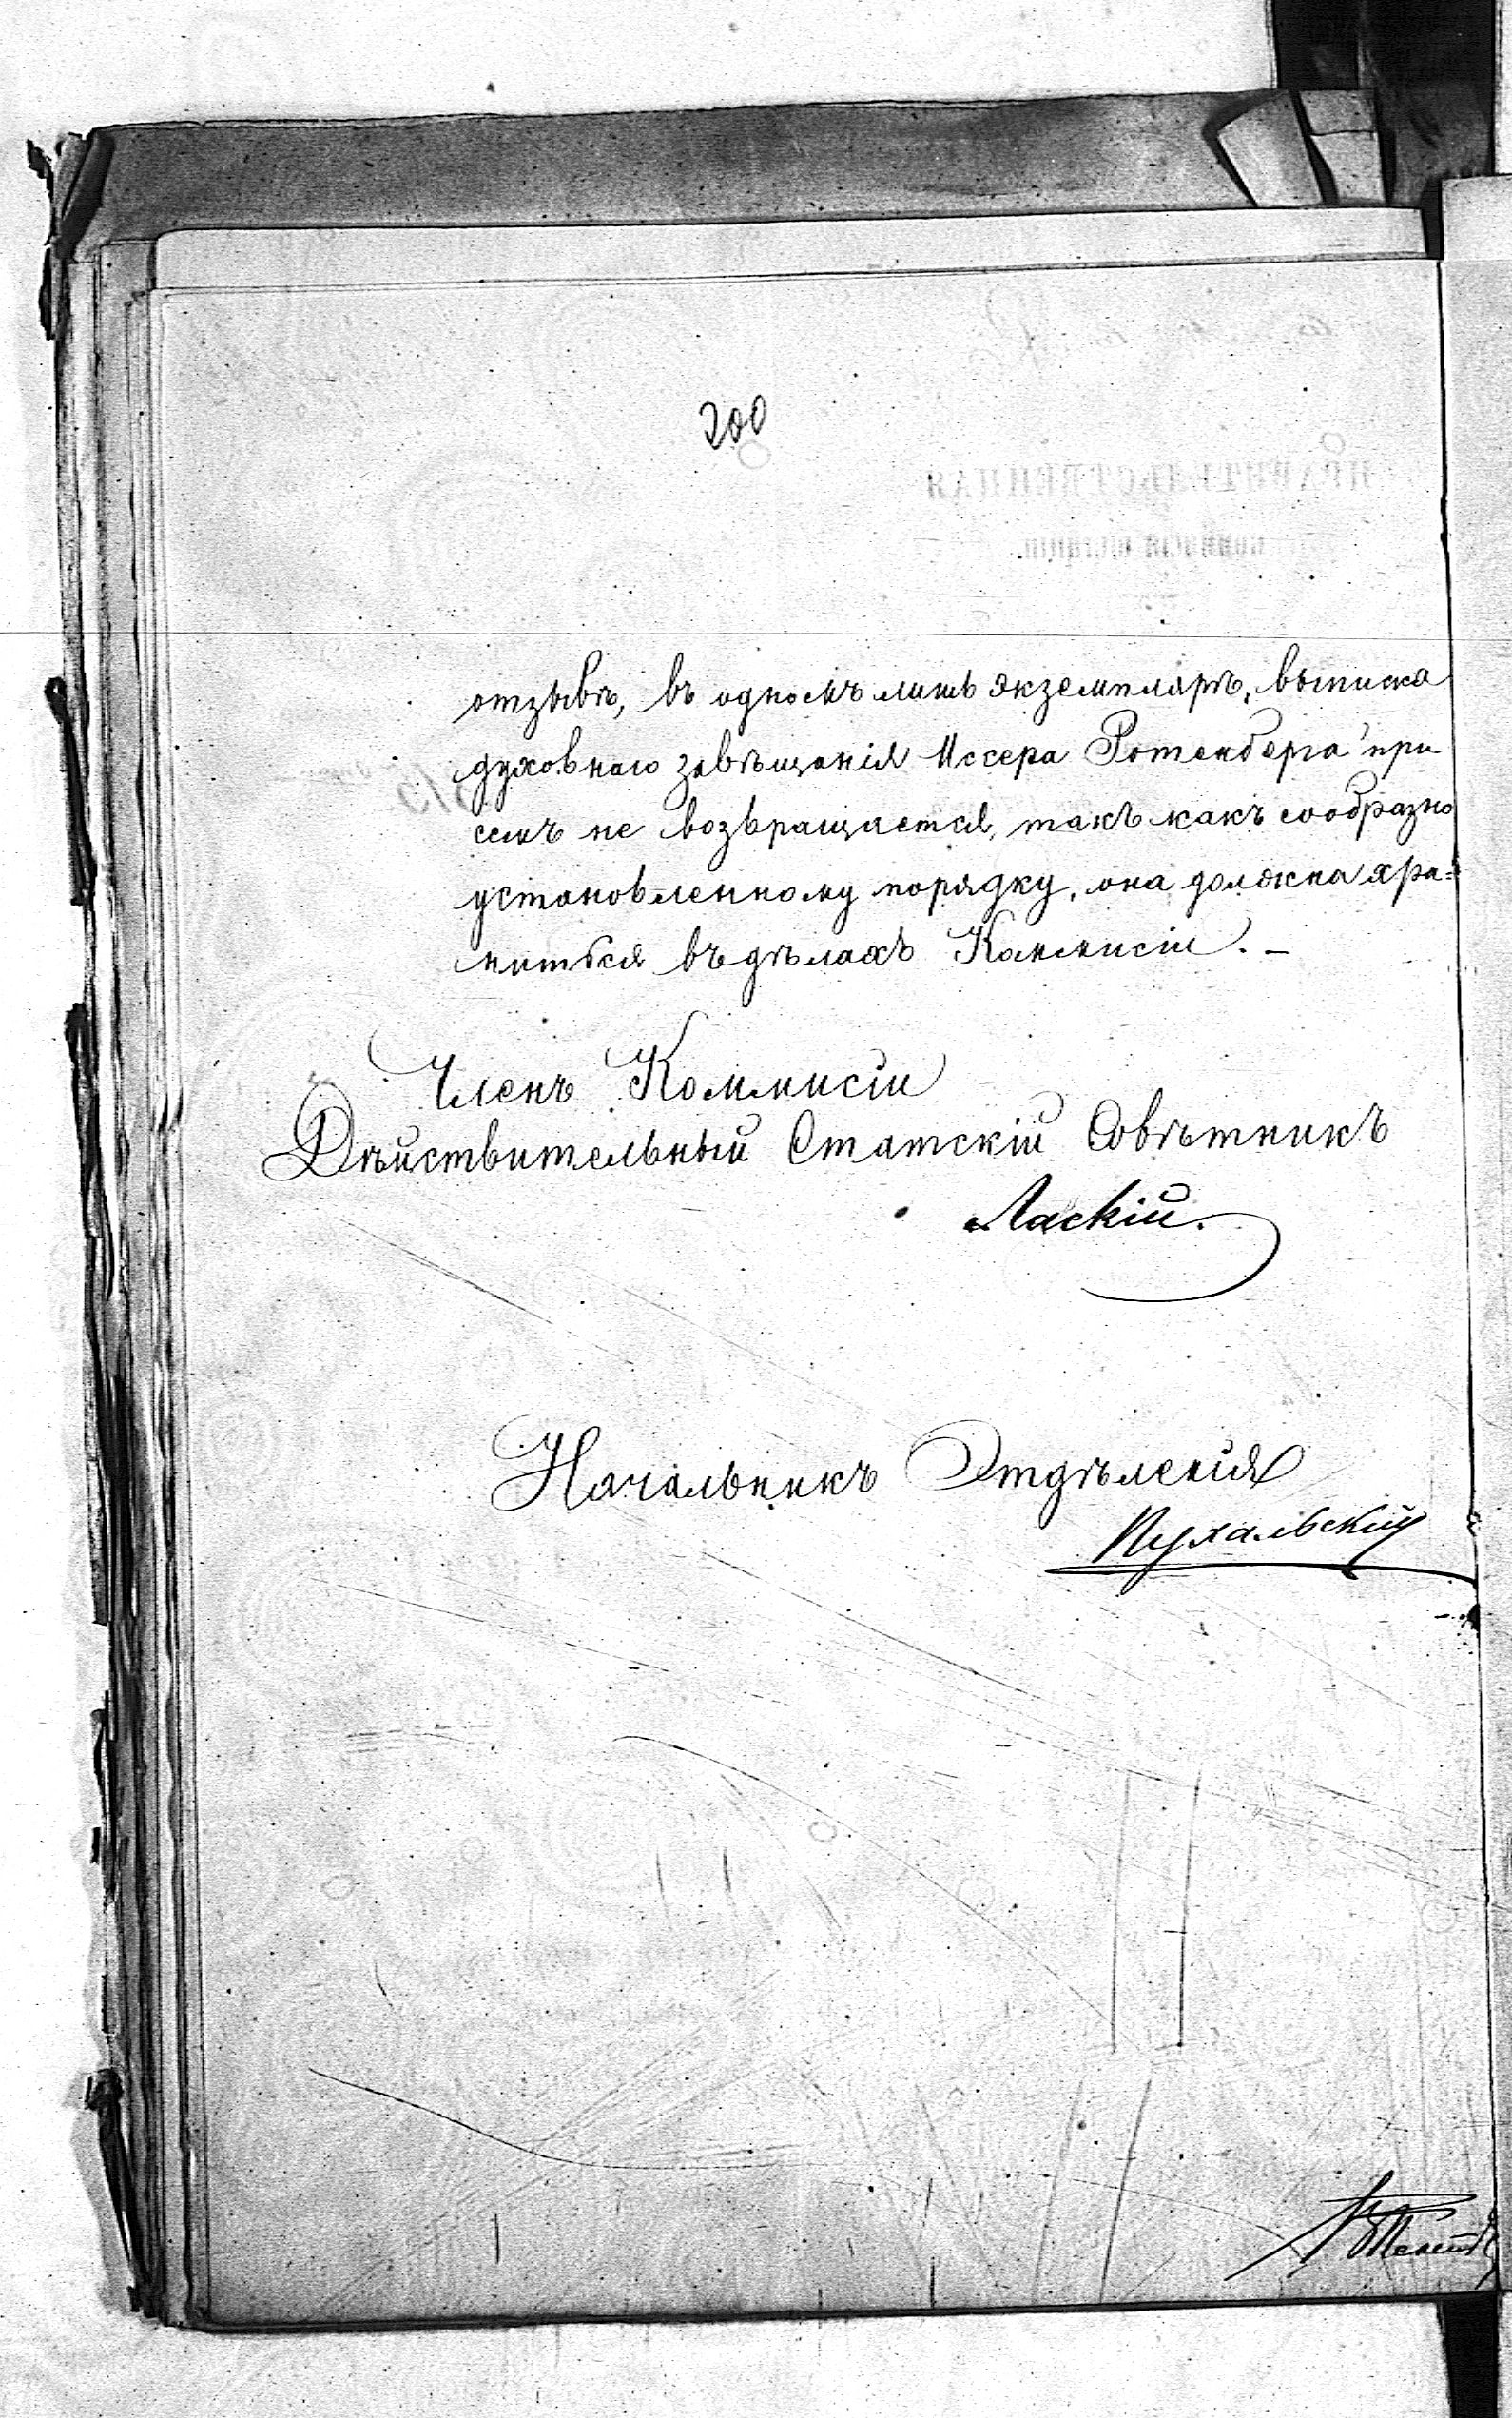 200
отзывѣ, въ одномъ лишь экземплярѣ, выписка
духовнаго завѣщанія Иссера Ротенберга при
семъ не возвращается, такъ какъ сообразно
установленному порядку, она должна хра=
ниться въ дѣлахъ Коммисіи. –
Членъ Коммисіи
Дѣйствительный Статскій Совѣтникъ
Ласкій.
Начальникъ Отдѣленія
Пухальскій